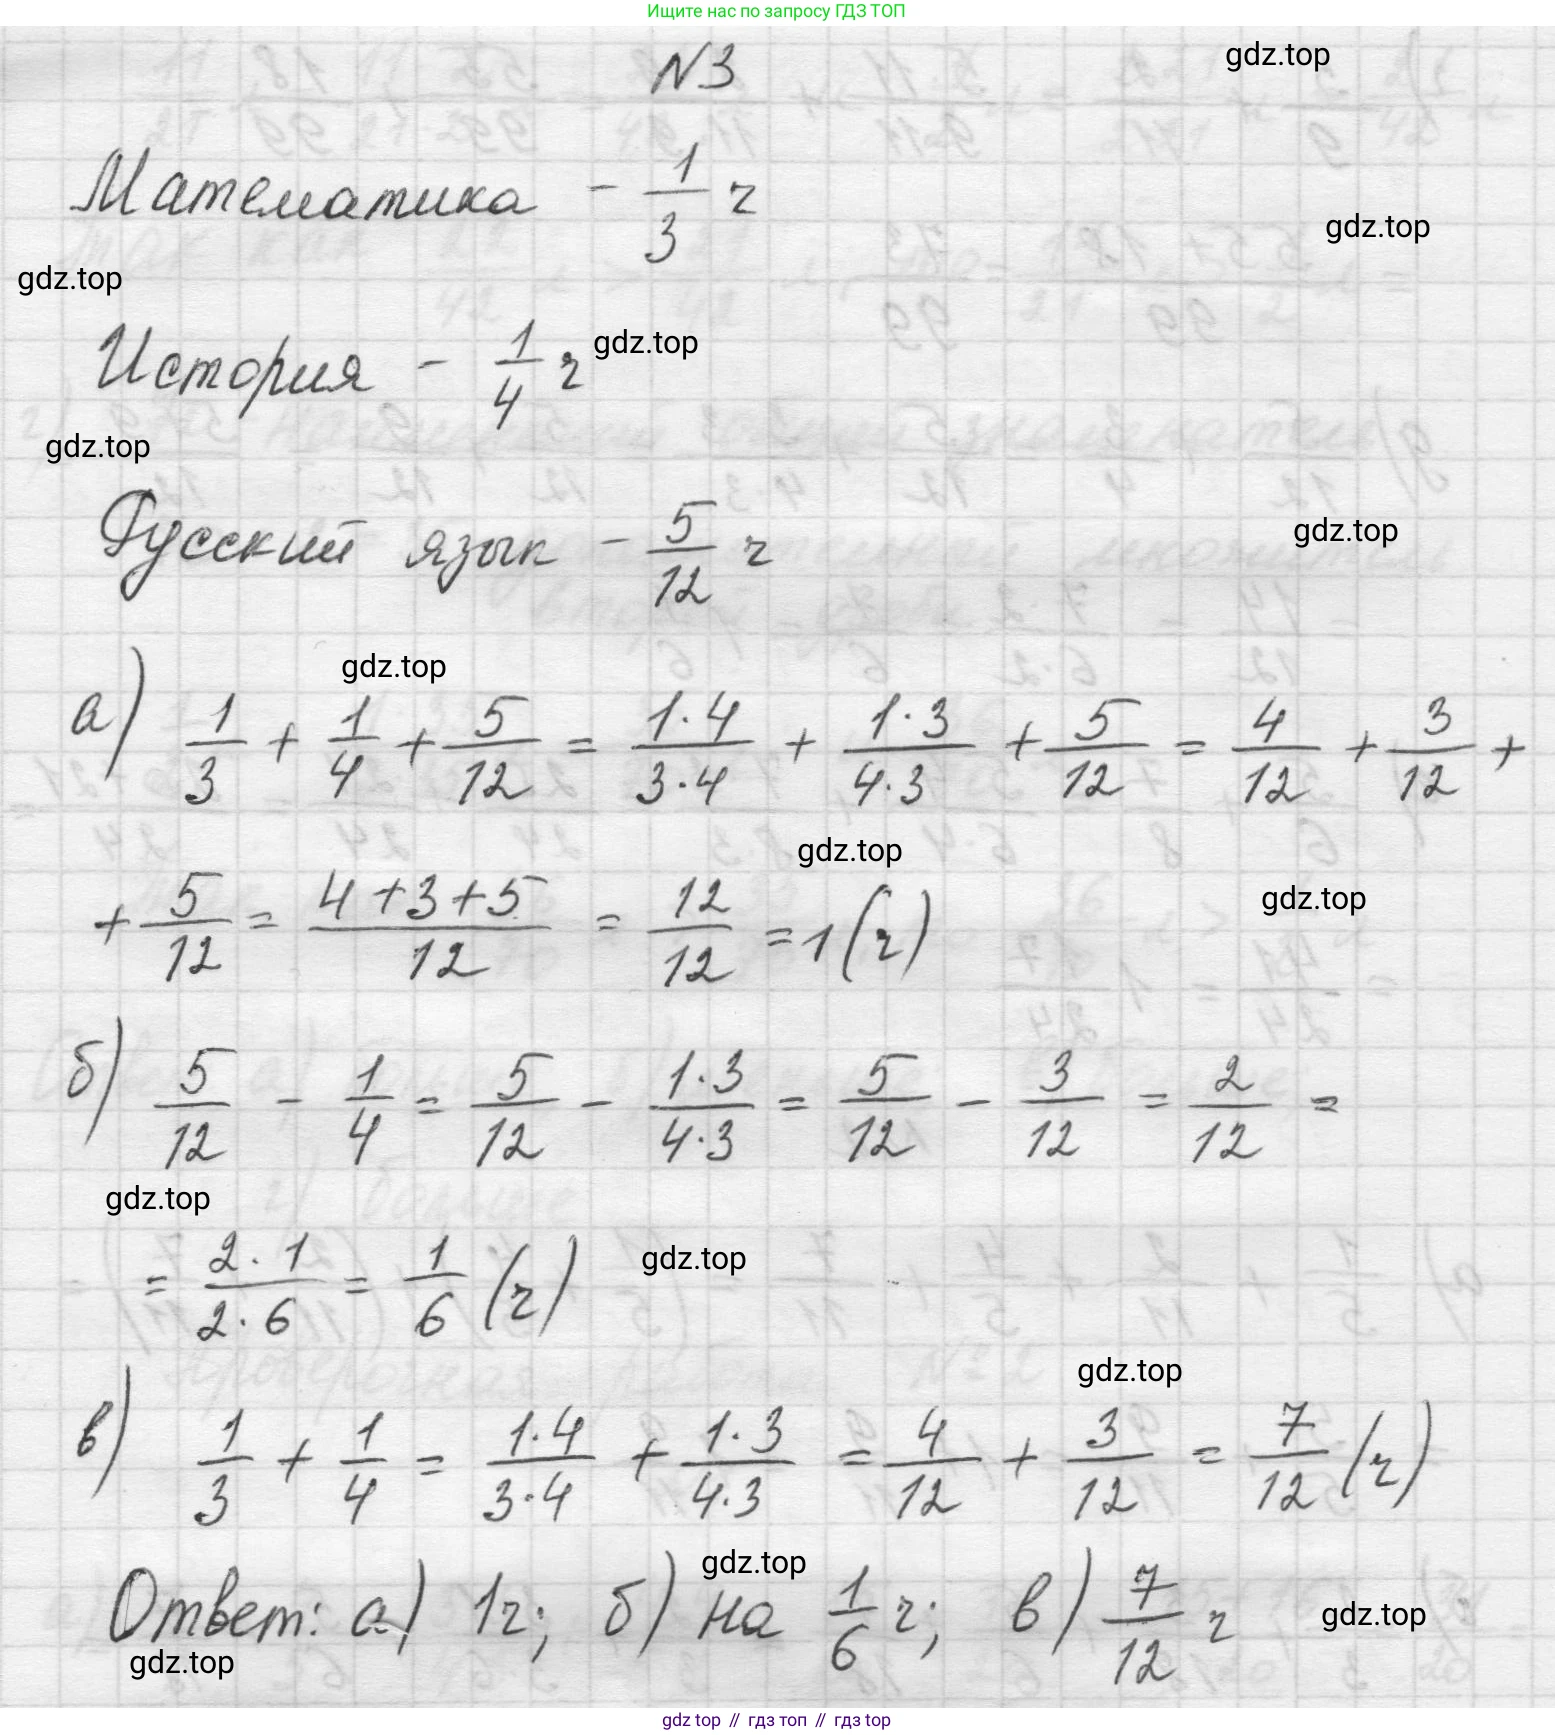 Ищите нас по запросу ГДЗ ТОП
N3
gdz.top
Математика - 1/3 ч
gdz.top
gdz.top
История - 1/4 ч
gdz.top
gdz.top
Русский язык - 5/12 ч
gdz.top
gdz.top
а) 1/3 + 1/4 + 5/12 = 1·4/3·4 + 1·3/4·3 + 5/12 = 4/12 + 3/12 +
gdz.top
+ 5/12 = 4+3+5/12 = 12/12 = 1 (ч)
gdz.top
б) 5/12 - 1/4 = 5/12 - 1·3/4·3 = 5/12 - 3/12 = 2/12 =
gdz.top
= 2·1/2·6 = 1/6 (ч)
gdz.top
gdz.top
в) 1/3 + 1/4 = 1·4/3·4 + 1·3/4·3 = 4/12 + 3/12 = 7/12 (ч)
gdz.top
Ответ: а) 1ч; б) на 1/6 ч; в) 7/12 ч
gdz.top
gdz.top
gdz top // гдз топ // гдз top